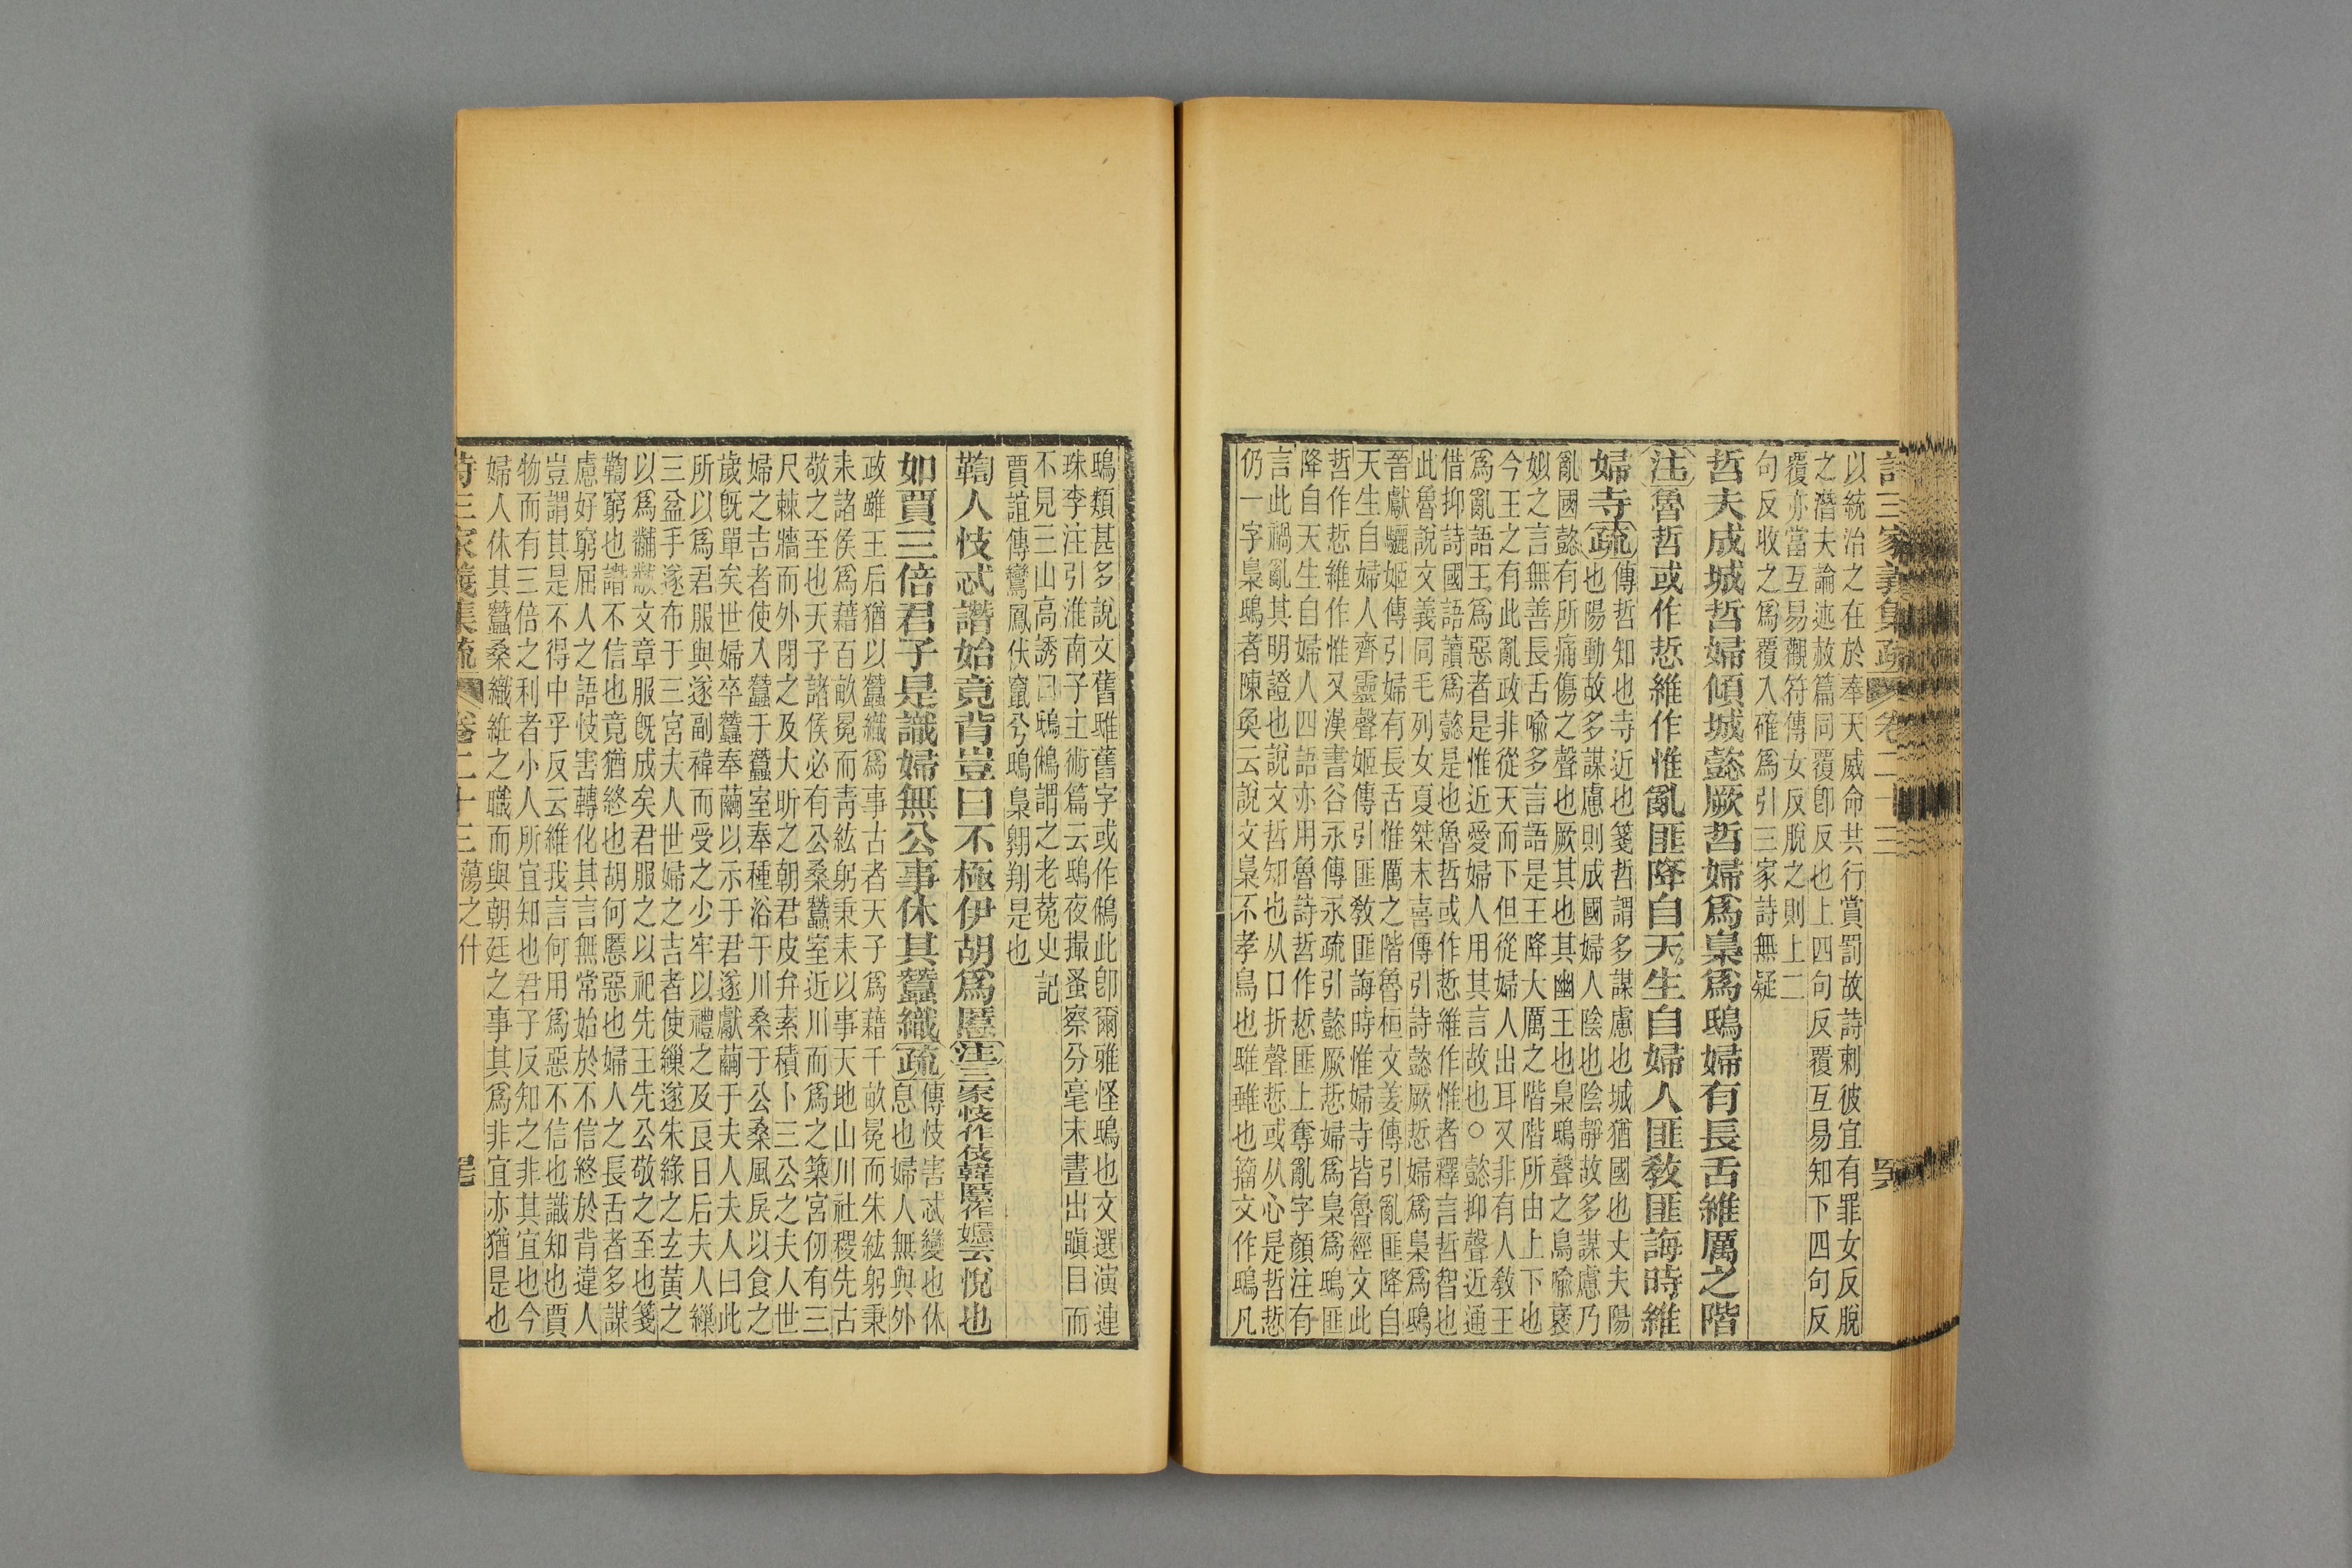 詩三家義集疏 卷二十三
以統治之在於奉天威命共行賞罰故詩刺彼宜有罪女反脫
之潛夫論述赦篇同覆卽反也上四句反覆互易知下四句反
覆亦當互易觀符傳女反脫之則上二
句反收之爲覆入確爲引三家詩無疑
哲夫成城哲婦傾城懿厥哲婦爲梟爲鴟婦有長舌維厲之階
注魯哲或作悊維作惟亂匪降自天生自婦人匪敎匪誨時維
婦寺疏
傳哲知也寺近也箋哲謂多謀慮也城猶國也丈夫陽
也陽動故多謀慮則成國婦人陰也陰靜故多謀慮乃
亂國懿有所痛傷之聲也厥其也其幽王也梟鴟聲之鳥喻襃
姒之言無善長舌喻多言語是王降大厲之階階所由上下也
今王之有此亂政非從天而下但從婦人出耳又非有人敎王
爲亂語王爲惡者是惟近愛婦人用其言故也○懿抑聲近通
借抑詩國語讀爲懿是也魯哲或作悊維作惟者釋言哲智也
此魯說文義同毛列女夏桀末喜傳引詩懿厥悊婦爲梟爲鴟
晉獻驪姬傳引婦有長舌惟厲之階魯桓文姜傳引亂匪降自
天生自婦人齊靈聲姬傳引匪敎匪誨時惟婦寺皆魯經文此
哲作悊維作惟又漢書谷永傳永疏引懿厥悊婦爲梟爲鴟匪
降自天生自婦人四語亦用魯詩哲作悊匪上奪亂字顏注有
言此禍亂其明證也說文哲知也从口折聲悊或从心是哲悊
仍一字梟鴟者陳奐云說文梟不孝鳥也雎雖也籀文作鴟凡
鴟類甚多說文舊雎舊字或作鵂此卽爾雅怪鴟也文選演連
珠李注引淮南子主術篇云鴟夜撮蚤察分毫末晝出瞋目而
不見三山高誘曰鴟鵂謂之老菟史記
賈誼傳鸞鳳伏竄兮鴟梟翺翔是也
鞫人忮忒譖始竟背豈曰不極伊胡爲慝注三家忮作伎韓慝作嬺云悅也
如賈三倍君子是識婦無公事休其蠶織疏
傳忮害忒變也休
息也婦人無與外
政雖王后猶以蠶織爲事古者天子爲藉千畝冕而朱紘躬秉
耒諸侯爲藉百畝冕而靑紘躬秉耒以事天地山川社稷先古
敬之至也天子諸侯必有公桑蠶室近川而爲之築宮仞有三
尺棘牆而外閉之及大昕之朝君皮弁素積卜三公之夫人世
婦之吉者使入蠶于蠶室奉種浴于川桑于公桑風戾以食之
歲旣單矣世婦卒蠶奉繭以示于君遂獻繭于夫人夫人曰此
所以爲君服與遂副褘而受之少牢以禮之及良日后夫人繅
三盆手遂布于三宮夫人世婦之吉者使繅遂朱綠之玄黃之
以爲黼黻文章服旣成矣君服之以祀先王先公敬之至也箋
鞫窮也譖不信也竟猶終也胡何慝惡也婦人之長舌者多謀
慮好窮屈人之語忮害轉化其言無常始於不信終於背違人
豈謂其是不得中乎反云維我言何用爲惡不信也識知也賈
物而有三倍之利者小人所宜知也君子反知之非其宜也今
婦人休其蠶桑織紝之職而與朝廷之事其爲非宜亦猶是也
詩三家義集疏 卷二十三 蕩之什